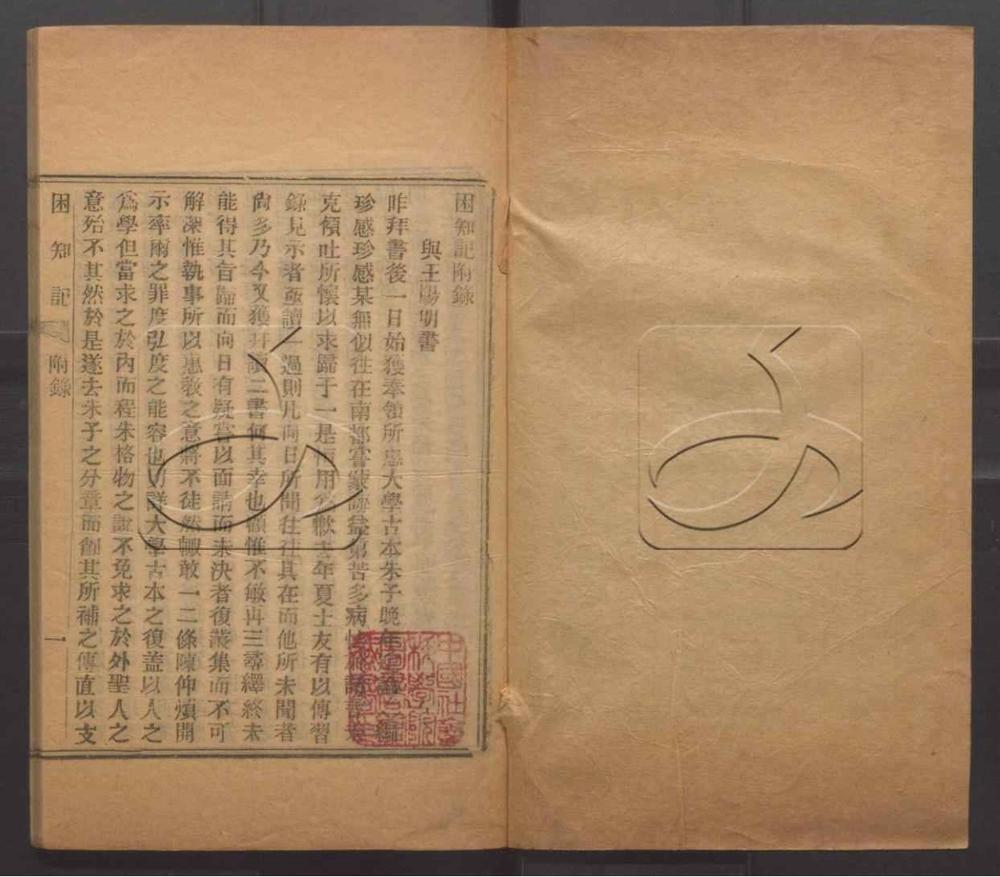 困知記附錄
與王陽明書
昨拜書後一日始獲奉領所惠大學古本朱子晚年定論二編
珍感珍感某無似往在南都嘗蒙誨益第苦多病怯於話言未
克傾吐所懷以求歸于一是恒用為歉去年夏士友有以傳習
錄見示者亟讀一過則凡向日所聞往往具在而他所未聞者
尚多乃今又獲并讀二書何其幸也顧惟不敏再三尋繹終未
能得其旨歸而向日有疑嘗以面請而未決者復叢集而不可
解深惟執事所以惠教之意將不徒然輒敢一二條陳仰煩開
示率爾之罪度弘度之能容也切詳大學古本之復蓋以人之
為學但當求之於內而程朱格物之說不免求之於外聖人之
意殆不其然於是遂去朱子之分章而削其所補之傳直以支
困知記 附錄 一